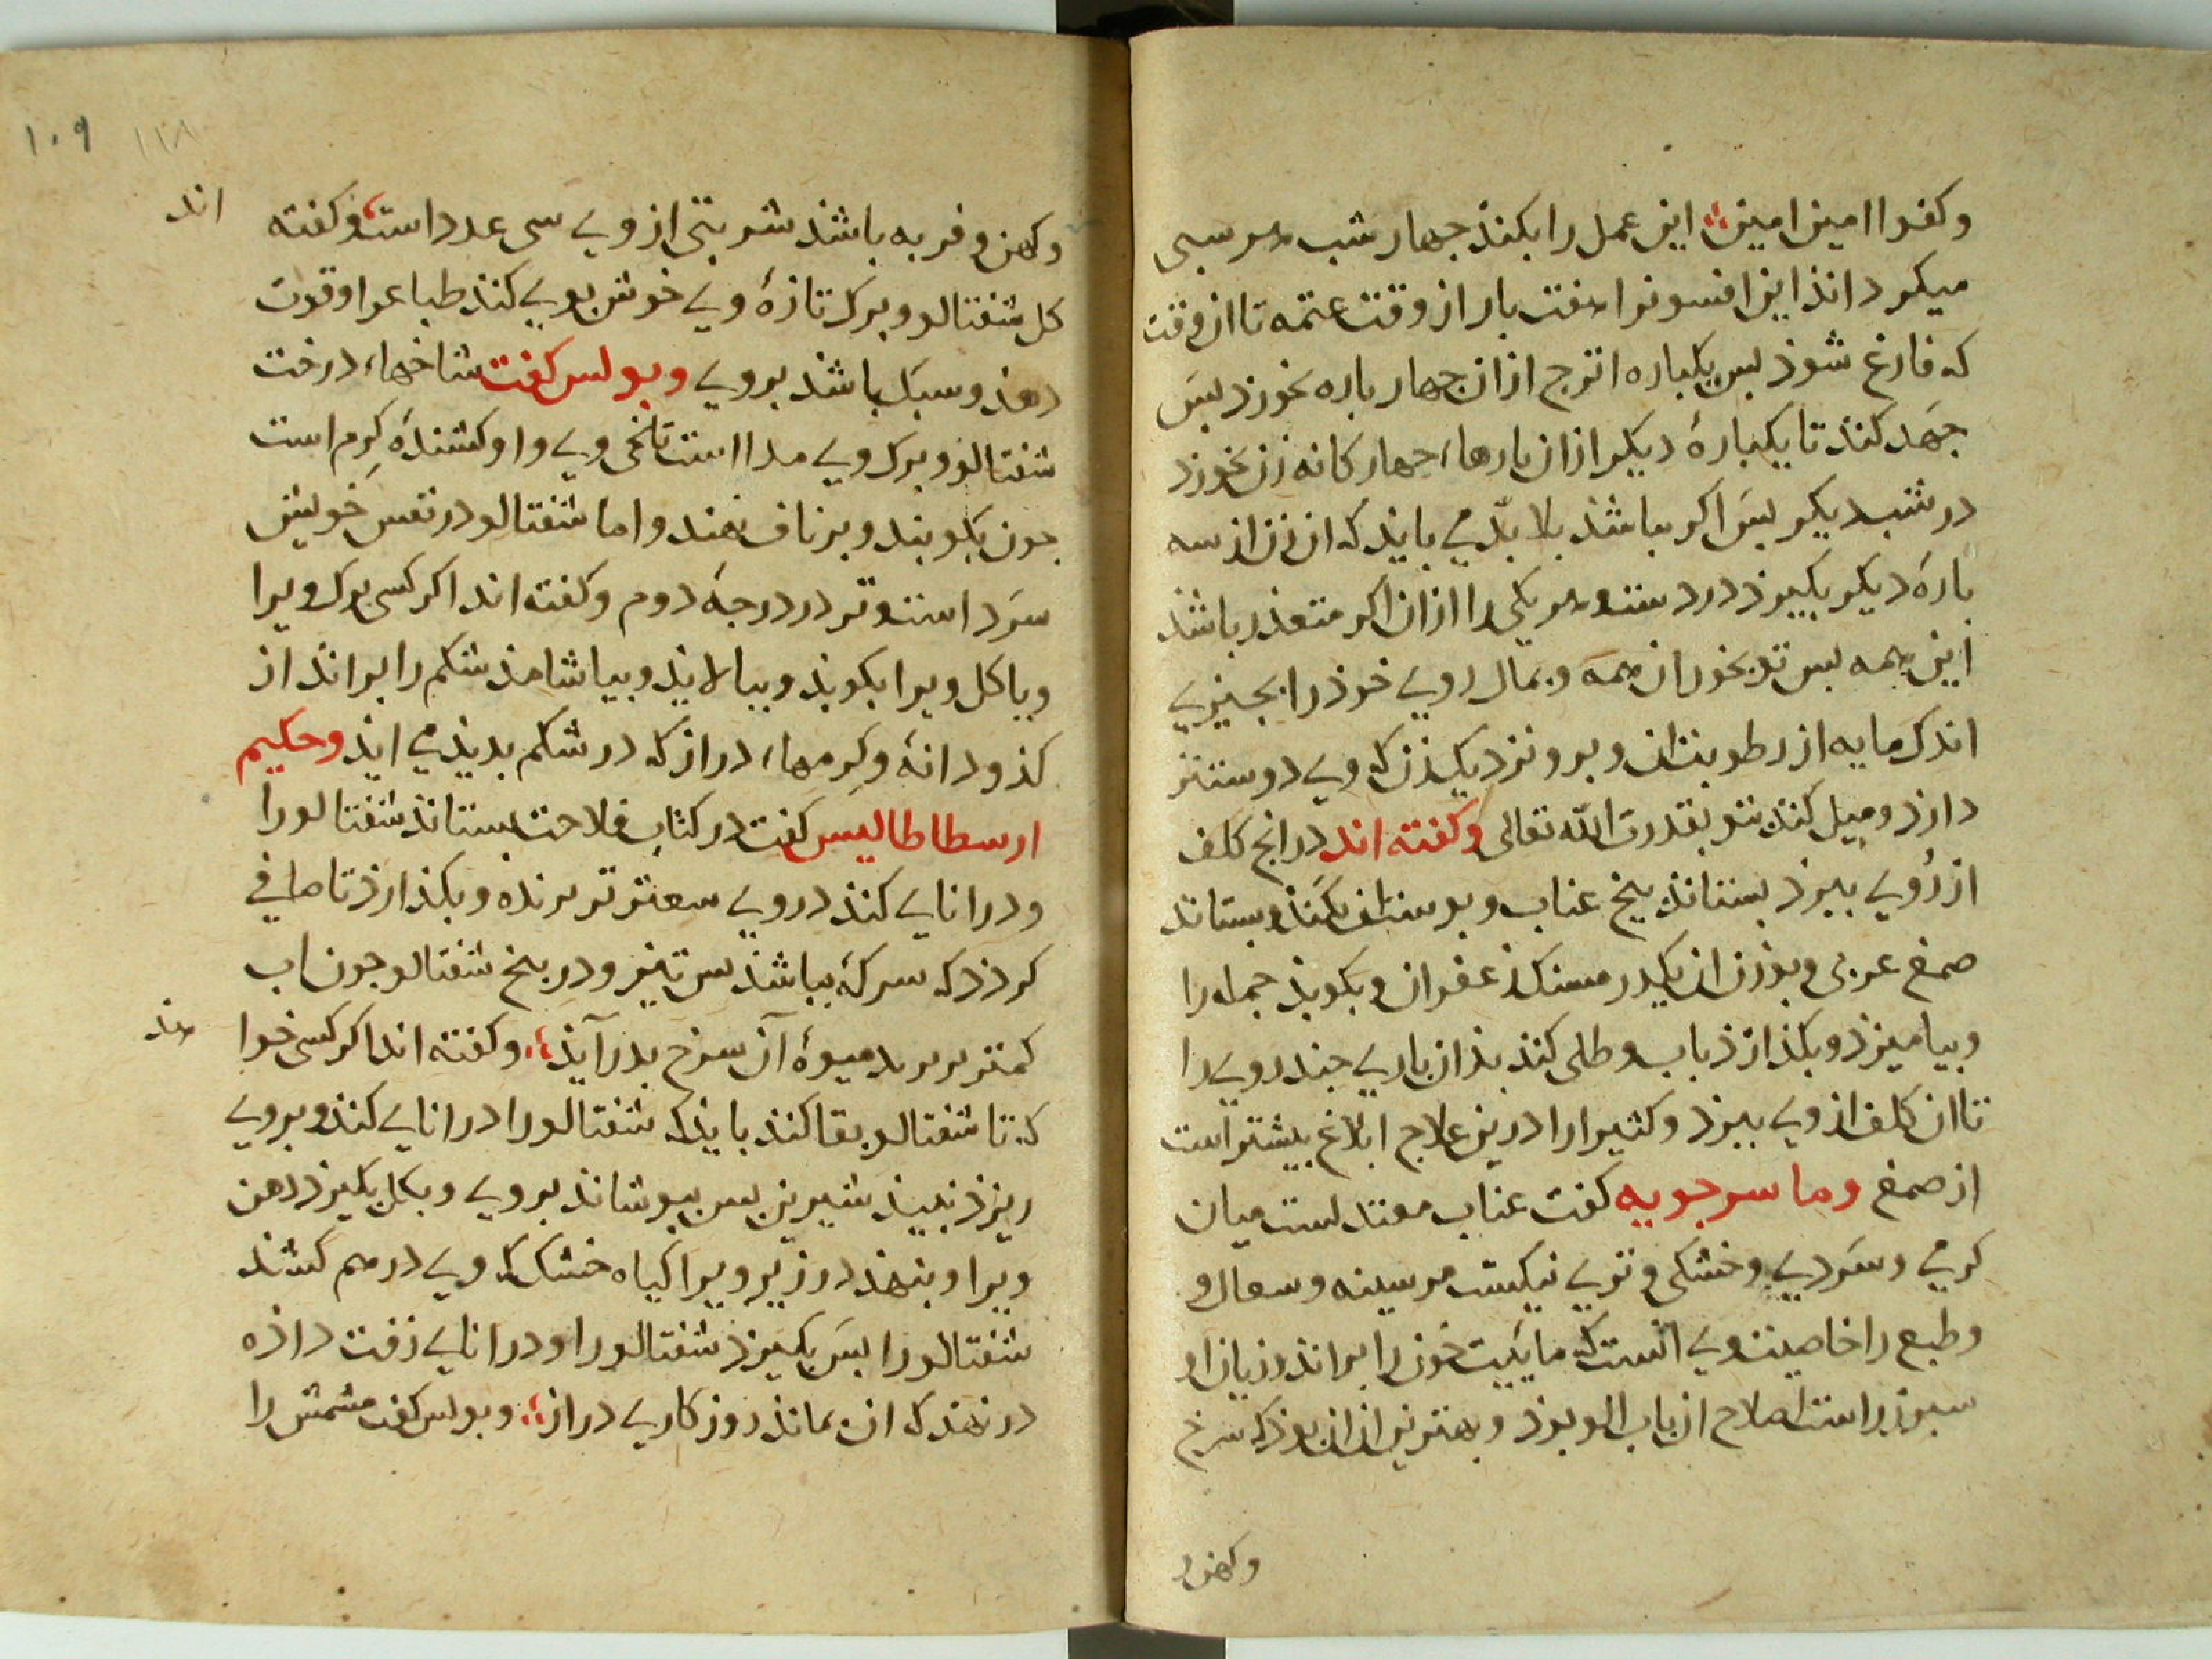 وکفوا امین امین این عمل را بکنذ جهار شب هر سبی
میکرداند این افسونرا هفت بار از وقت عتمه تا ان وقت
که فارغ شوذ بس یکباره اترج ازان جهار باره بخورذ بسَ
جهَد کنذ تا یکبارهٔ دیکر ازان بارهاء جهار کانه زن بخورذ
در شب دیکر بسَ اکر بباشذ بلا بدّ می بایذ که ان زن از سه
بارهٔ دیکر بکیرذ در دست هر یکی را ازان اکر متعذر باشذ
این همه بس تو بخور ان همه و بمال روی خوذ را بجیزی
اندک مایه از رطوبت ان و برو نزدیک زن که وی دوستتر
دارذ و میل کنذ بتو بقدرت اللّه تعالی وکفته اند درانج کلف
از رُوی ببرذ بستانذ بیخ عناب و بوستش بکند و بستاند
صمغ عربی و بوزن ان یکدرمسنک زعفران و بکوبذ جمله را
و بیامیزذ و بکذارذ باب و طلی کنذ بذان باری جند روی را
تا ان کلف از وی ببرذ و کثیرا را درین علاج ابلاغ بیشتر است
از صمغ وما سرجویه کفت عناب معتدلست میان
کرمی و سَردی و خشکی و تری نیکست مر سینه و سعال و
و طبع را خاصیت وی انست که مایَیت خون را براند و زیان او
سبوز راست اصلاح ان باب الو بوذ و بهترین ان ان بوذ که سرخ
وکهن و
وکهن و فربه باشذ شربتی از وی سی عدد است وکفته اند
کل شفتالو و برک تازهٔ وی خوش بویی کنذ طباعرا و قوت
دهذ و سبک باشذ بروی و بولس کفت شاخهاء درخت
شفتالو و برک وی مدا است تلخی وی را و کشندهٔ کِرم است
جون بکوبند و بر ناف نهند و اما شفتالو در نفس خویش
سَرد است و تر در درجهٔ دوم و کفته اند اکر کسی برک ویرا
و یا کل ویرا بکوبذ و ببالایذ و بیاشامذ شکم را براند از
کذو دانهٔ و کِرمهاء دراز که در شکم بدیذ می ایذ و حکیم
ارسطاطالیس کفت در کتاب فلاحت بستاند شفتالو را
و در انایی کنذ در وی سعتر تر برنده و بکذارذ تا صافی
کردذ که سرکهٔ بباشذ بس تیز و در بیخ شفتالو جون اب
کمتر بربرید میوهٔ آن سرخ بدر آیذ و کفته اند اکر کسی خوا هذ
که تا شفتالو بقا کند بایذ که شفتالو را در انایی کنذ و بروی
ریزذ نبیذ شیرین بس ببوشاند بروی و بکل بکیرذ دهن
ویرا و بنهذ در زیر ویرا کیاه خشک که وی در هم کشذ
شفتالو را بسَ بکیرذ شفتالو را و در انایی زفت داذه
در نهذ که ان بماند روزکاری دراز و بولس کفت مشمش را